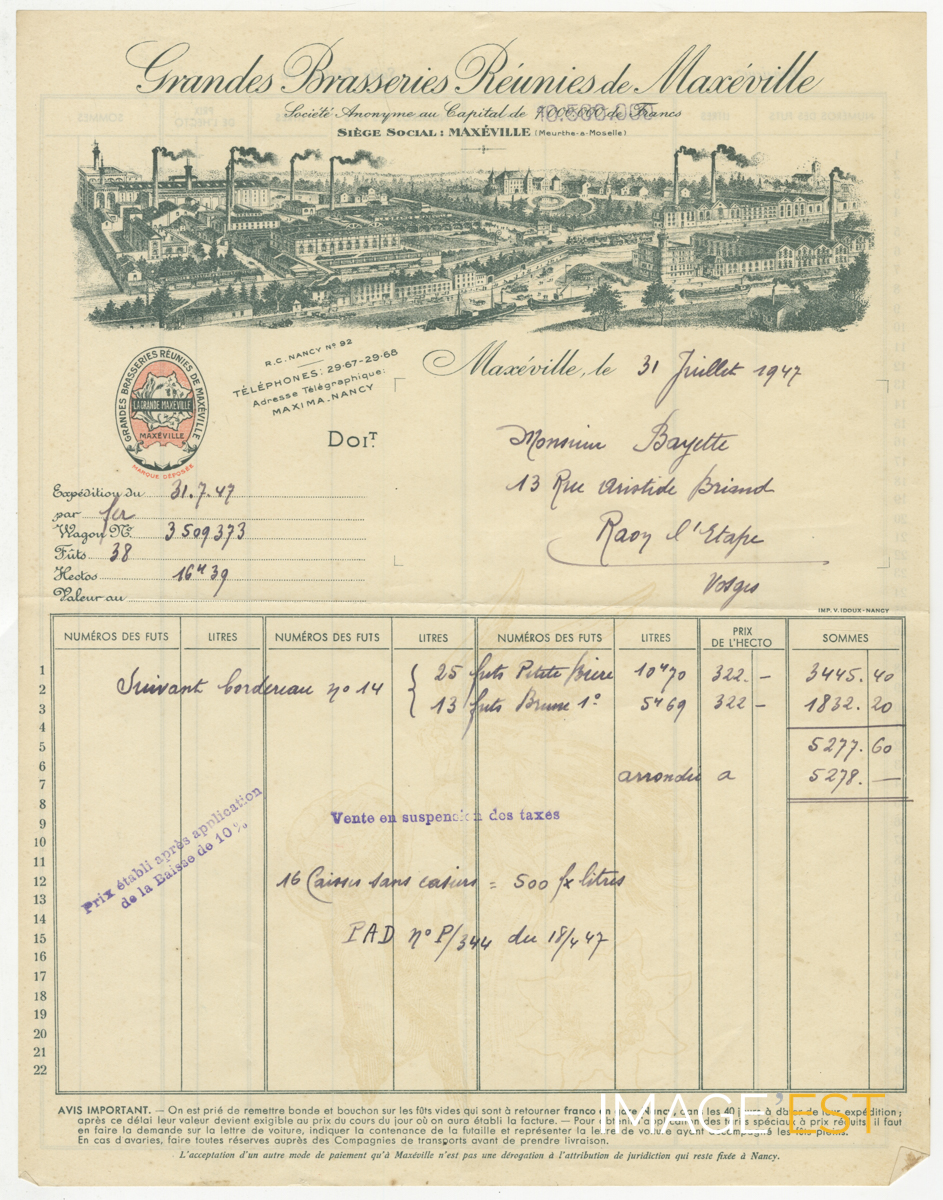 Grandes Brasseries Réunies de Maxéville
Société Anonyme au Capital de de Francs
SIÈGE SOCIAL : MAXÉVILLE (Meurthe-&-Moselle)
GRANDES BRASSERIES RÉUNIES DE MAXÉVILLE
LA GRANDE MAXÉVILLE
MAXÉVILLE
MARQUE DÉPOSÉE
R.C. NANCY Nº 92
TÉLÉPHONES: 29-67-29-68
Adresse Télégraphique:
MAXIMA-NANCY
Maxéville, le 31 Juillet 1947
DOIT
Monsieur Bayette
13 Rue Aristide Briand
Raon l'Etape
Vosges
Expédition du 31.7.47
par fer
Wagon Nº 3509373
Fûts 38
Hectos 16H39
Valeur au
IMP. V. IDOUX-NANCY
NUMÉROS DES FUTS LITRES NUMÉROS DES FUTS LITRES NUMÉROS DES FUTS LITRES PRIX DE L'HECTO SOMMES
1 25 futs Petite bière 1070 322.- 3445.40
2 Suivant bordereau nº 14
3 13 futs Brune 1º 569 322- 1832.20
4
5 5277.60
6
7 arrondi a 5278.-
8
9 Vente en suspension des taxes
Prix établi après application
de la Baisse de 10 %
10
11
12 16 Caisses sans casiers = 500 fx litres
13
14
15 PAD nº P/344 du 18/4 47
16
17
18
19
20
21
22
AVIS IMPORTANT. — On est prié de remettre bonde et bouchon sur les fûts vides qui sont à retourner franco en gare Nancy, dans les 40 jours à dater de leur expédition ;
après ce délai leur valeur devient exigible au prix du cours du jour où on aura établi la facture. — Pour obtenir l'application des tarifs spéciaux à prix réduits, il faut
en faire la demande sur la lettre de voiture, indiquer la contenance de la futaille et représenter la lettre de voiture ayant accompagné les fûts pleins.
En cas d'avaries, faire toutes réserves auprès des Compagnies de transports avant de prendre livraison.
L'acceptation d'un autre mode de paiement qu'à Maxéville n'est pas une dérogation à l'attribution de juridiction qui reste fixée à Nancy.
IMAGE'EST